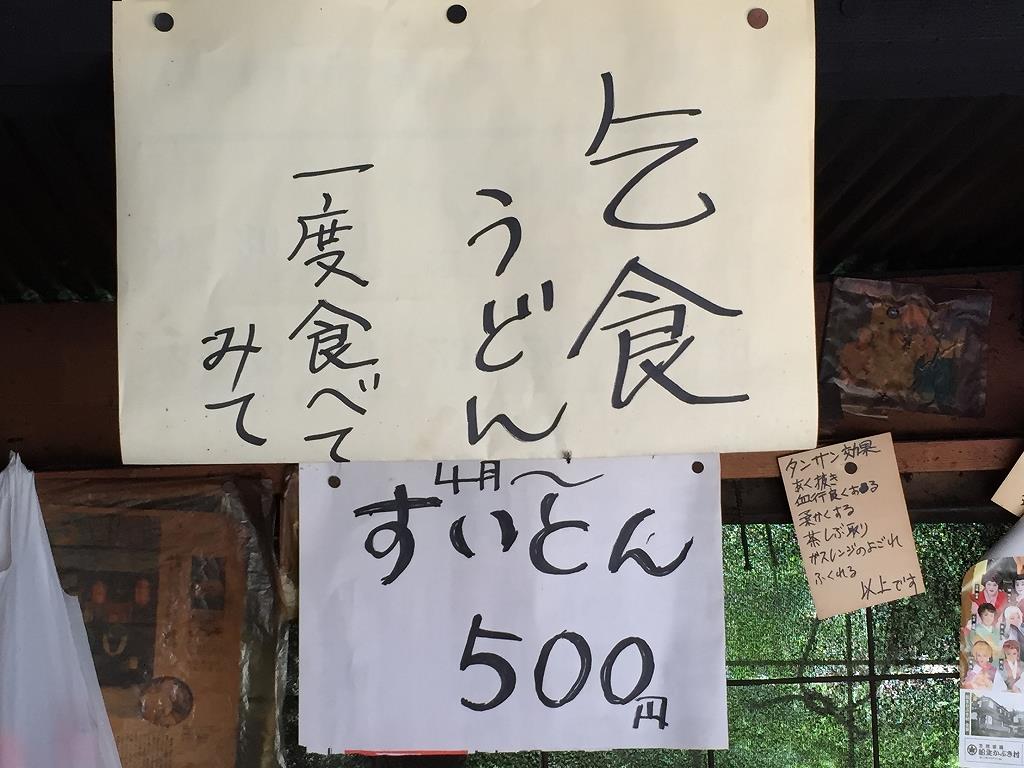 乞食
うどん
一度食べて
みて
4月〜
すいとん
500円
タンサン効果
あく抜き
血行良くする
柔かくする
茶しぶ取り
ガスレンジのよごれ
ふくれる
以上です